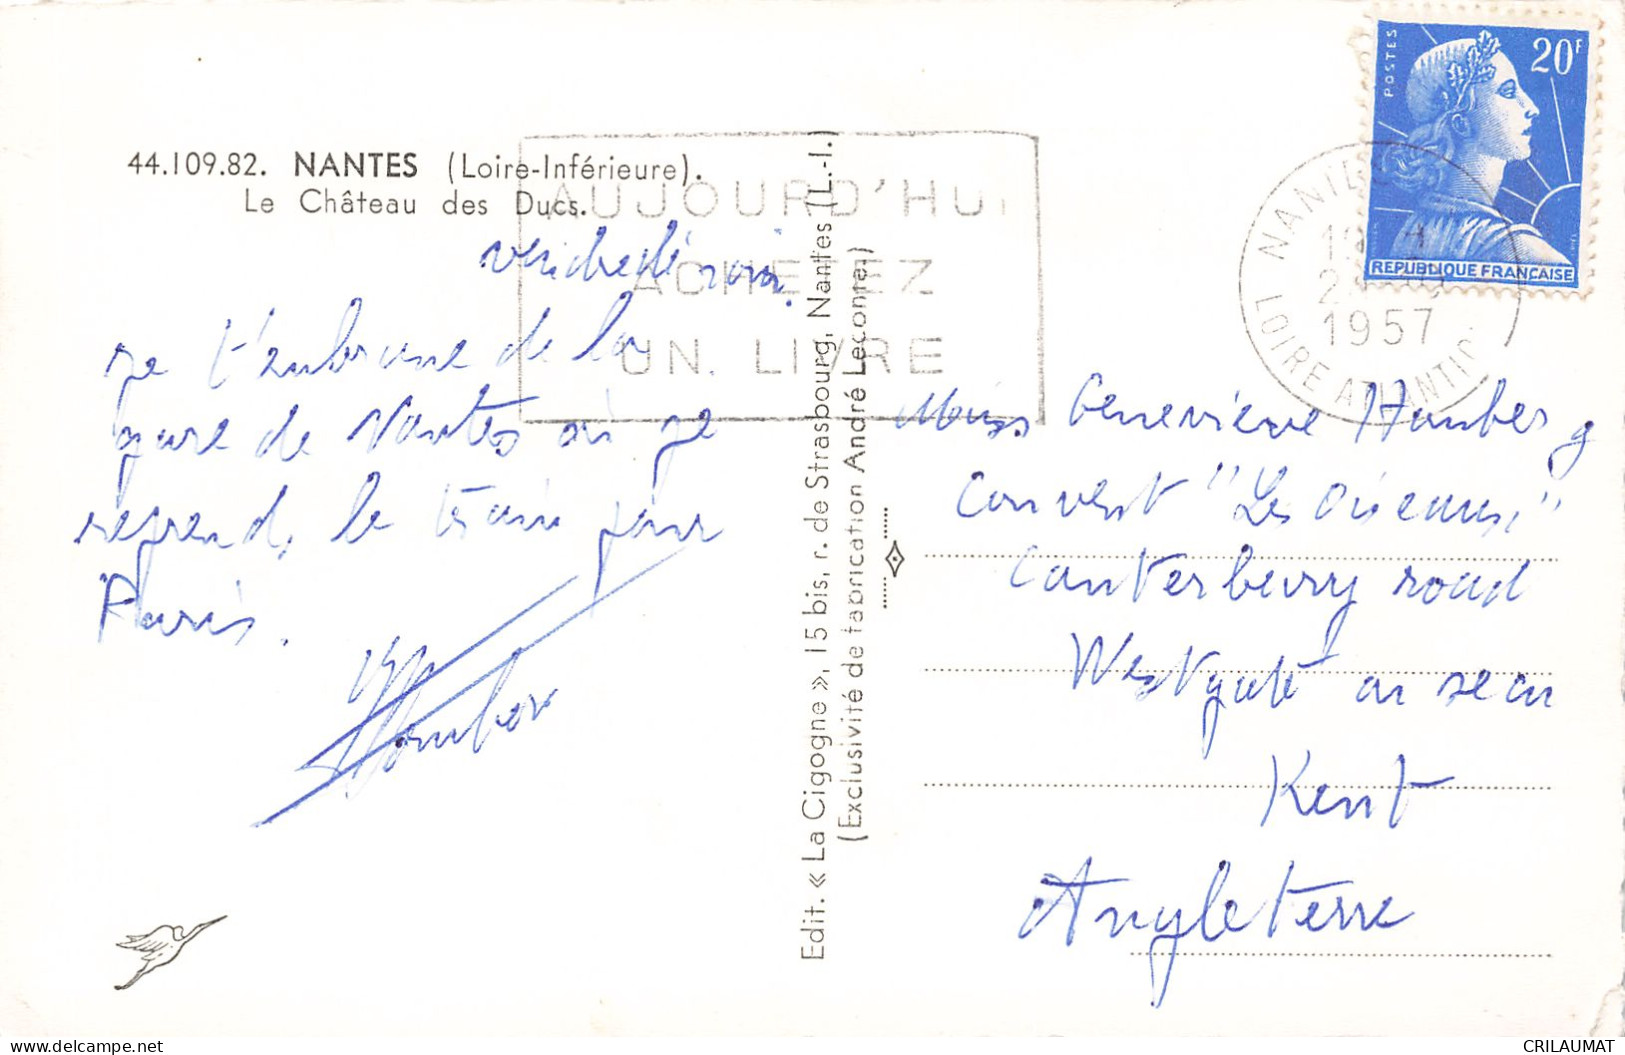 44.109.82. NANTES (Loire-Inférieure).
Le Château des Ducs.
AUJOURD'HUI
ACHETEZ
UN LIVRE
je t'embrasse de la
gare de Nantes où je
reprends le train pour
Paris.
Edit. « La Cigogne », 15 bis, r. de Strasbourg, Nantes (L.-I.)
(Exclusivité de fabrication André Leconte)
POSTES
20F
REPUBLIQUE FRANÇAISE
NANTES
1957
LOIRE ATLANTIQ
Miss Geneviève Humberg
Convent "Les Oiseaux"
Canterbery road
Westgate on sea
Kent
Angleterre
CRILAUMAT